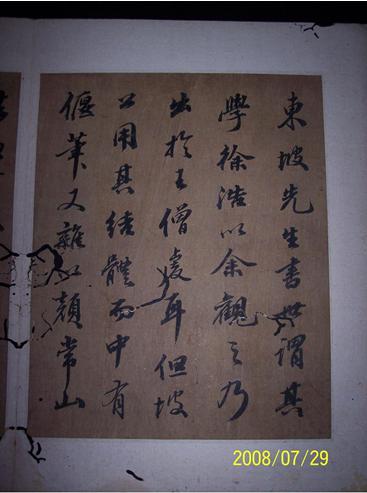 東坡先生書世謂其
學徐浩以余觀之乃
出於王僧虔耳但坡
公用其結體而中有
偃筆又雜以顏常山
2008/07/29